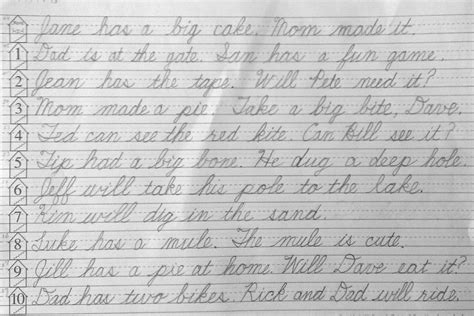 Jane has a big cake. Mom made it.
1 Dad is at the gate. Sam has a fun game.
2 Jean has the tape. Will Pete need it?
3 Mom made a pie. Take a big bite, Dave.
4 Ted can see the red kite. Can Bill see it?
5 Tip had a big bone. He dug a deep hole.
6 Jeff will take his pole to the lake.
7 Kim will dig in the sand.
8 Luke has a mule. The mule is cute.
9 Jill has a pie at home. Will Dave eat it?
10 Dad has two bikes. Rick and Dad will ride.